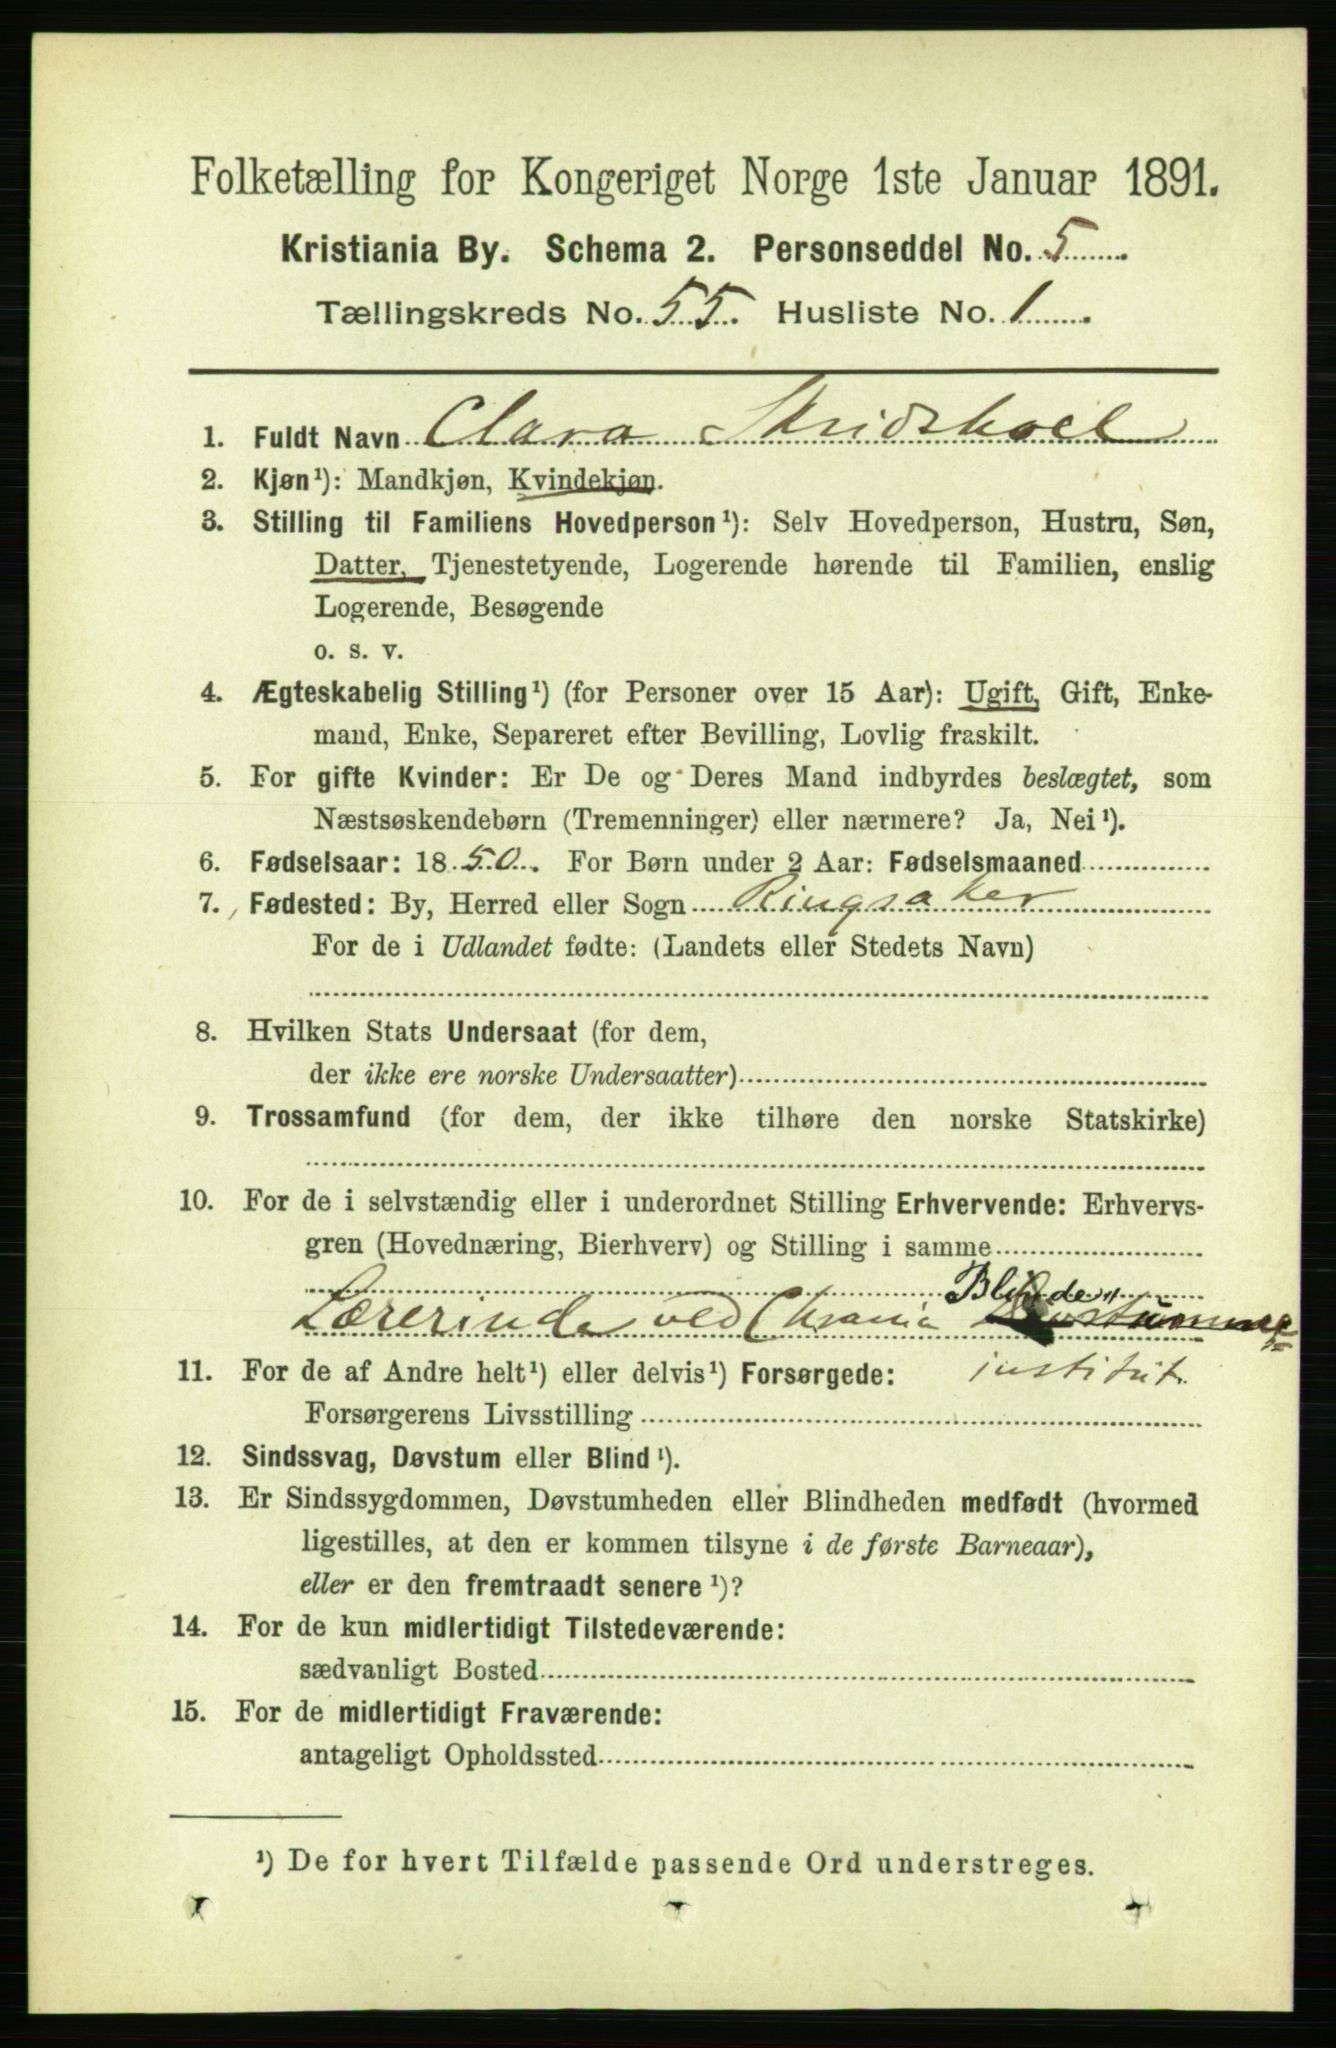 Folketælling for Kongeriget Norge 1ste Januar 1891.
Kristiania By. Schema 2. Personseddel No. 5
Tællingskreds No. 55. Husliste No. 1
1. Fuldt Navn Clara Skridshoel
2. Kjøn¹): Mandkjøn, Kvindekjøn.
3. Stilling til Familiens Hovedperson¹): Selv Hovedperson, Hustru, Søn,
Datter, Tjenestetyende, Logerende hørende til Familien, enslig
Logerende, Besøgende
o. s. v.
4. Ægteskabelig Stilling¹) (for Personer over 15 Aar): Ugift, Gift, Enke-
mand, Enke, Separeret efter Bevilling, Lovlig fraskilt.
5. For gifte Kvinder: Er De og Deres Mand indbyrdes beslægtet, som
Næstsøskendebørn (Tremenninger) eller nærmere? Ja, Nei¹).
6. Fødselsaar: 1850. For Børn under 2 Aar: Fødselsmaaned
7. Fødested: By, Herred eller Sogn Ringsaker
For de i Udlandet fødte: (Landets eller Stedets Navn)
8. Hvilken Stats Undersaat (for dem,
der ikke ere norske Undersaatter)
9. Trossamfund (for dem, der ikke tilhøre den norske Statskirke)
10. For de i selvstændig eller i underordnet Stilling Erhvervende: Erhvervs-
gren (Hovednæring, Bierhverv) og Stilling i samme
Blinde
Lærerinde ved Chrania Døvstumme
11. For de af Andre helt¹) eller delvis¹) Forsørgede: institut.
Forsørgerens Livsstilling
12. Sindssvag, Døvstum eller Blind¹).
13. Er Sindssygdommen, Døvstumheden eller Blindheden medfødt (hvormed
ligestilles, at den er kommen tilsyne i de første Barneaar),
eller er den fremtraadt senere¹)?
14. For de kun midlertidigt Tilstedeværende:
sædvanligt Bosted
15. For de midlertidigt Fraværende:
antageligt Opholdssted
¹) De for hvert Tilfælde passende Ord understreges.